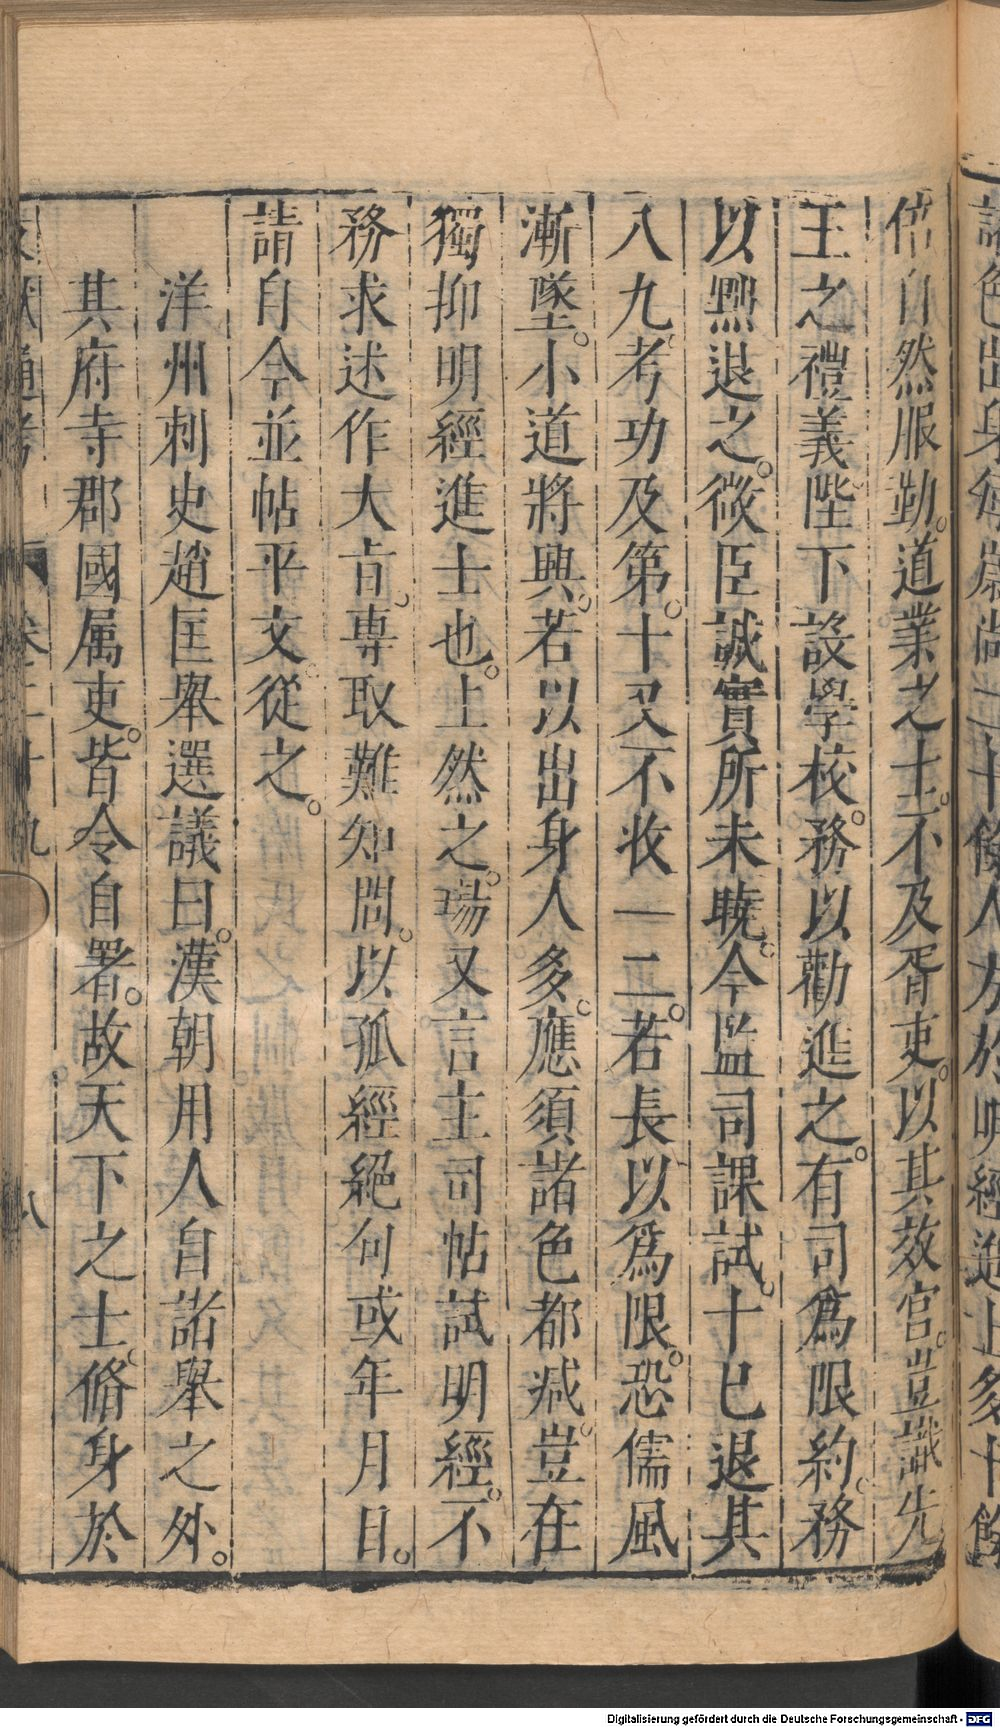 倍自然服勤。道業之士。不及胥吏。以其效官。豈識先
王之禮義。陛下設學校。務以勸進之。有司為限約。務
以黜退之。微臣誠實所未曉。今監司課試。十已退其
八九。考功及第。十又不收一二。若長以爲限。恐儒風
漸墜。小道將興。若以出身人多。應須諸色都减。豈在
獨抑明經進士也。上然之。瑒又言主司帖試明經。不
務求述作大旨。專取難知問。以孤經絕句或年月日。
請自今並帖平文。從之。
洋州刺史趙匡舉選議曰。漢朝用人自諸舉之外。
其府寺郡國属吏。皆令自署。故天下之士。脩身於
通考 卷二十九
諸色出身每歲尚二千餘人方於明經進士多十餘
Digitalisierung gefördert durch die Deutsche Forschungsgemeinschaft - DFG